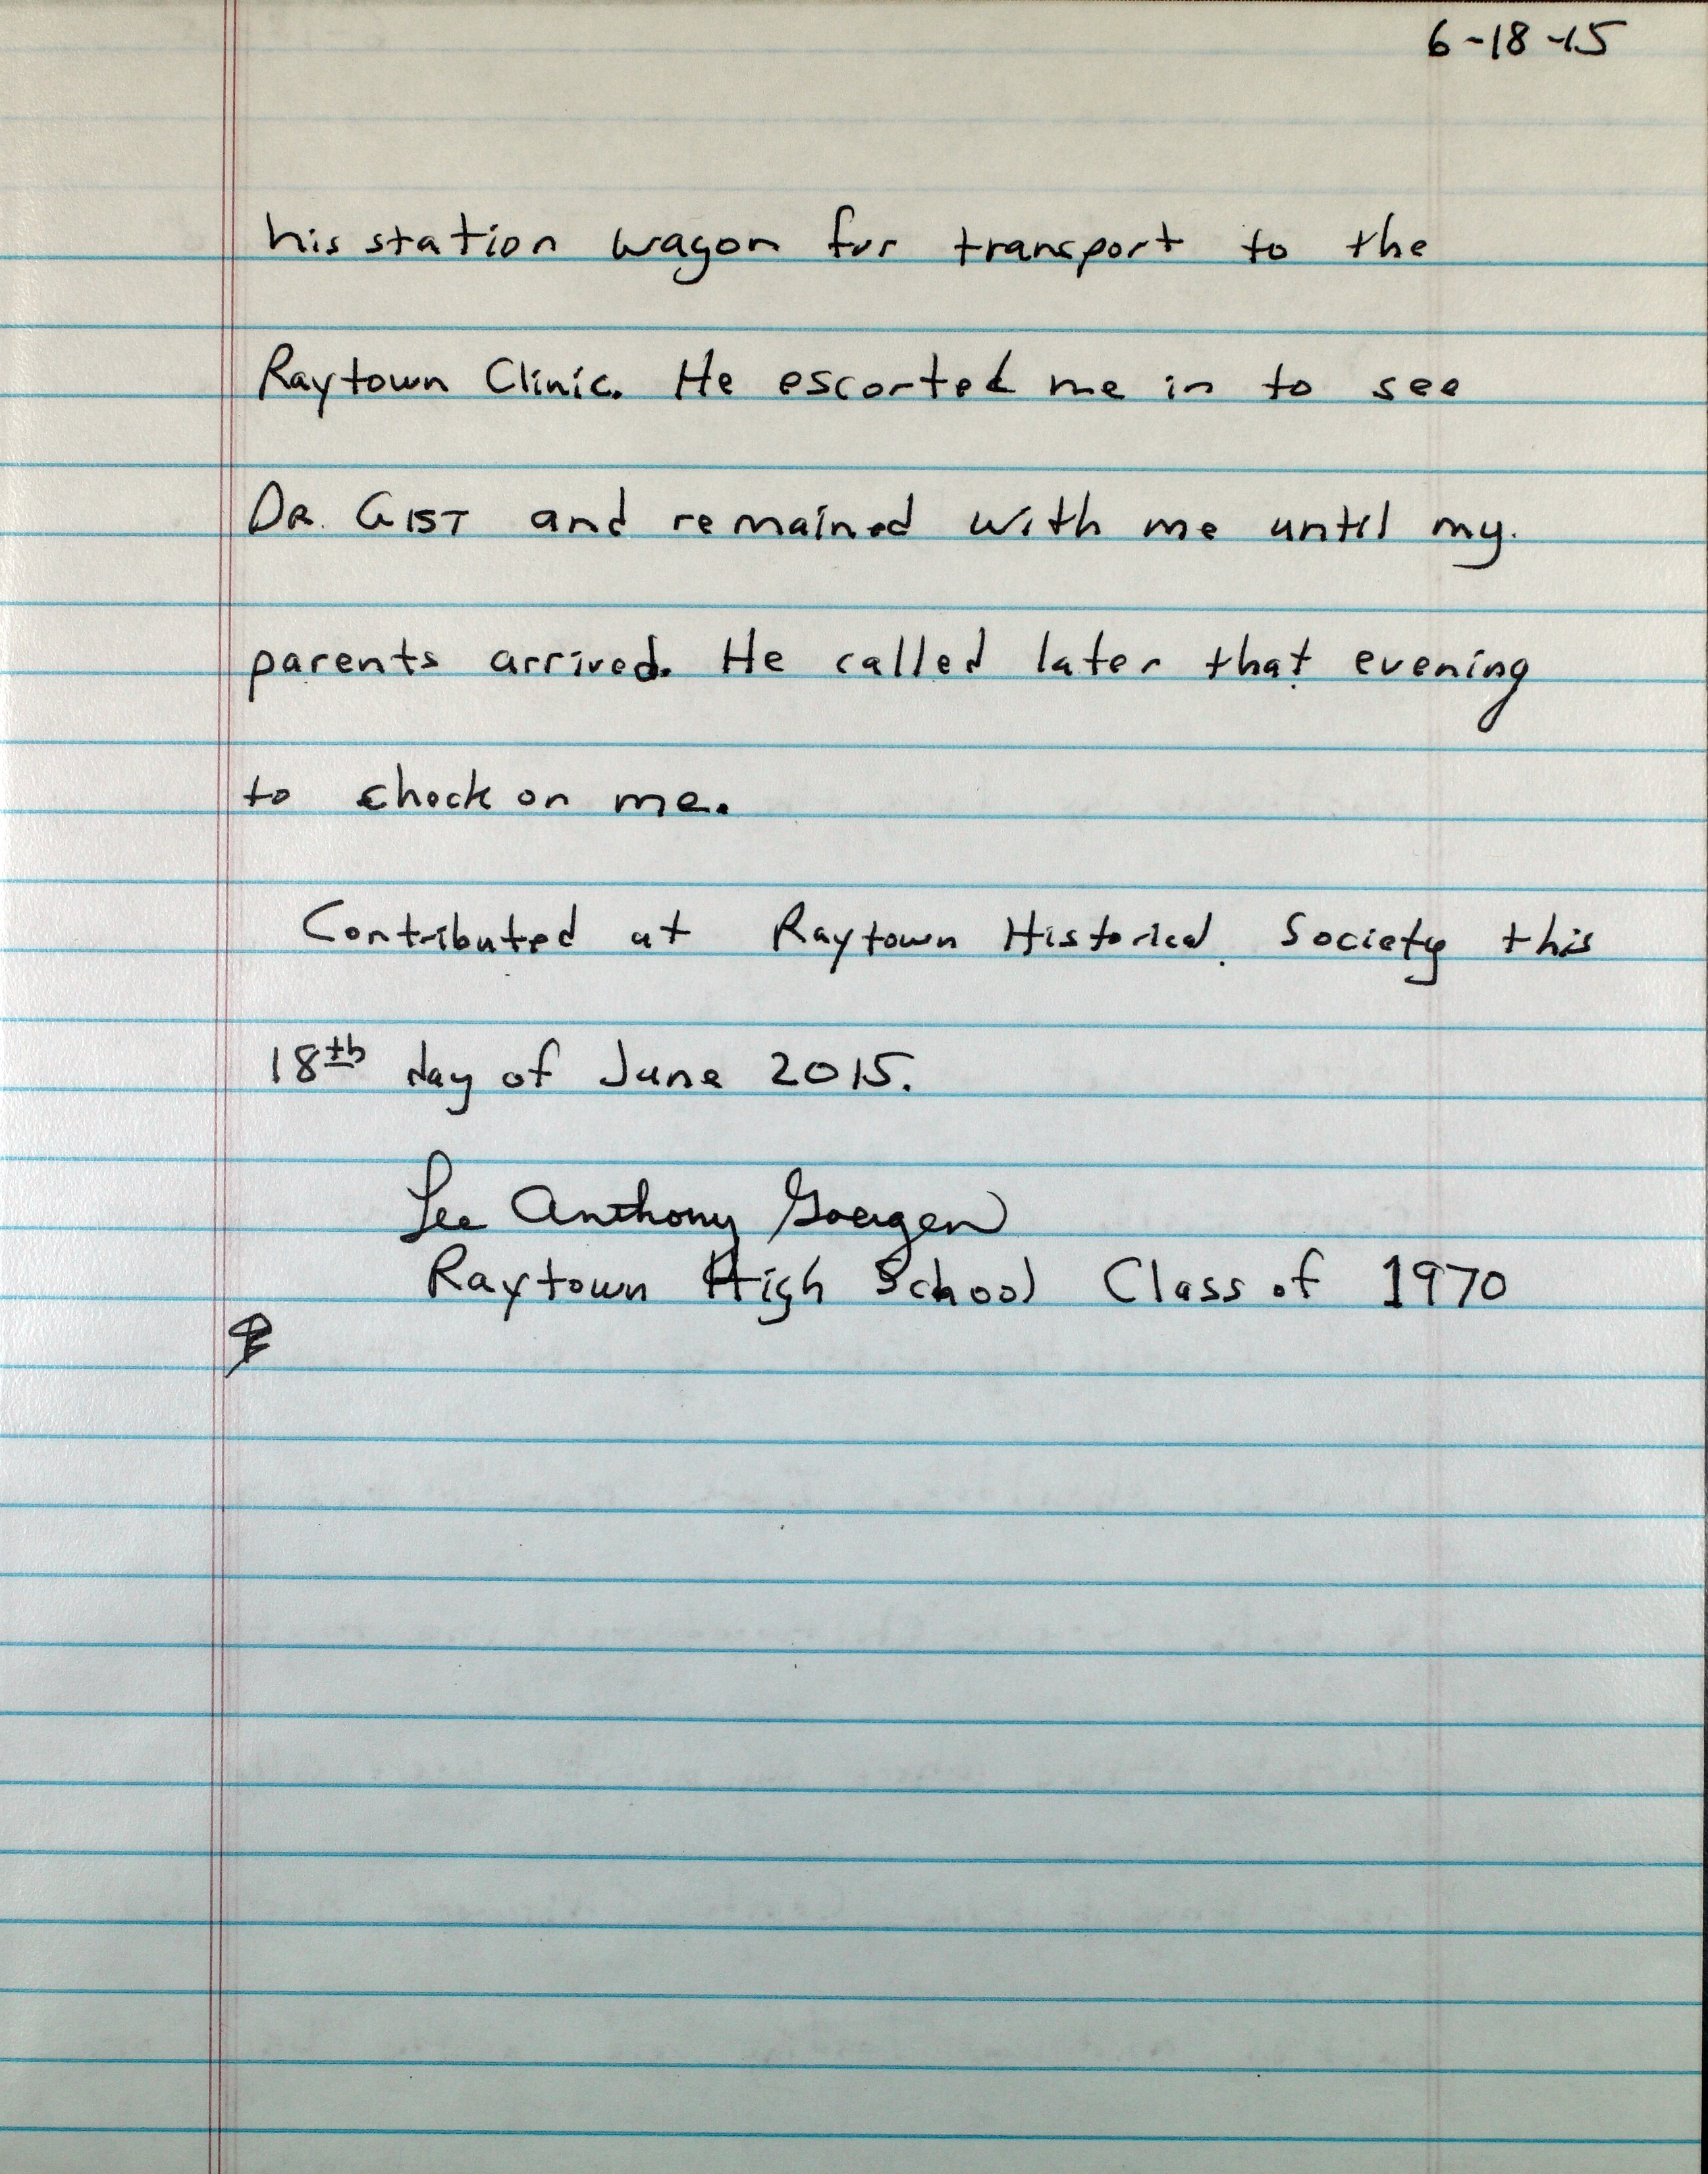 6-18-15
his station wagon for transport to the
Raytown Clinic. He escorted me in to see
DR. GIST and remained with me until my
parents arrived. He called later that evening
to check on me.
Contributed at Raytown Historical Society this
18th day of June 2015.
Lee Anthony Goergen
Raytown High School Class of 1970